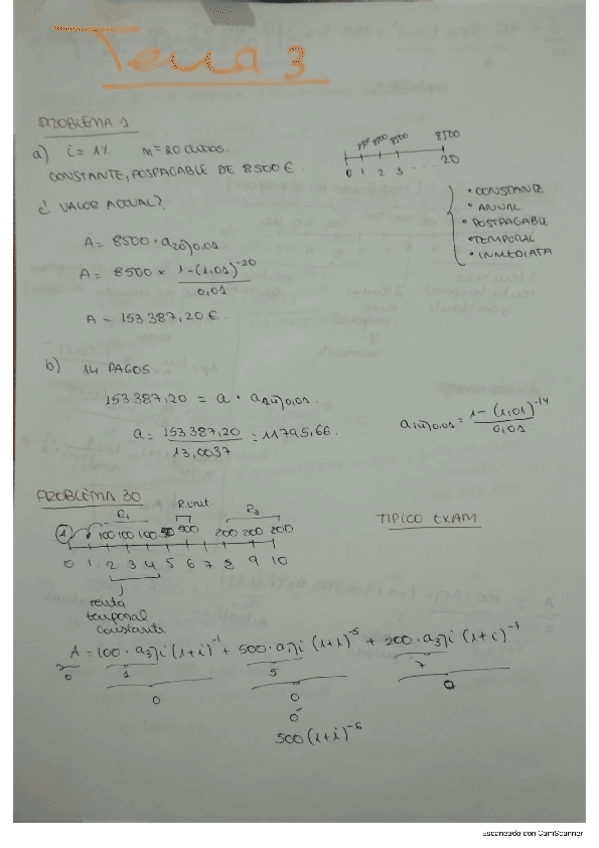 Tema 3
PROBLEMA 1
a) i = 1%. n = 20 cuotas.
CONSTANTE, POSPAGABLE DE 8500 €.
8500 8500 8500 8500
0 1 2 3 ... 20
¿ VALOR ACTUAL?
• CONSTANTE
• ANUAL
• POSTPAGABLE
• TEMPORAL
• INMEDIATA
A = 8500 · a20⌉0,01
A = 8500 × 1-(1,01)^-20 / 0,01
A = 153 387,20 €.
b) 14 PAGOS.
153 387,20 = a · a14⌉0,01.
a = 153 387,20 / 13,0037 = 11795,66.
a14⌉0,01 = 1-(1,01)^-14 / 0,01.
PROBLEMA 30
TIPICO EXAM
R1 R.unit. R3
A 100 100 100 500 200 200 200
0 1 2 3 4 5 6 7 8 9 10
renta
temporal
constante
A = 100 · a3⌉i (1+i)^-1 + 500 · a1⌉i (1+i)^-5 + 200 · a3⌉i (1+i)^-7
0 1 5 7
0 0 0
ó
500 (1+i)^-6
Escaneado con CamScanner